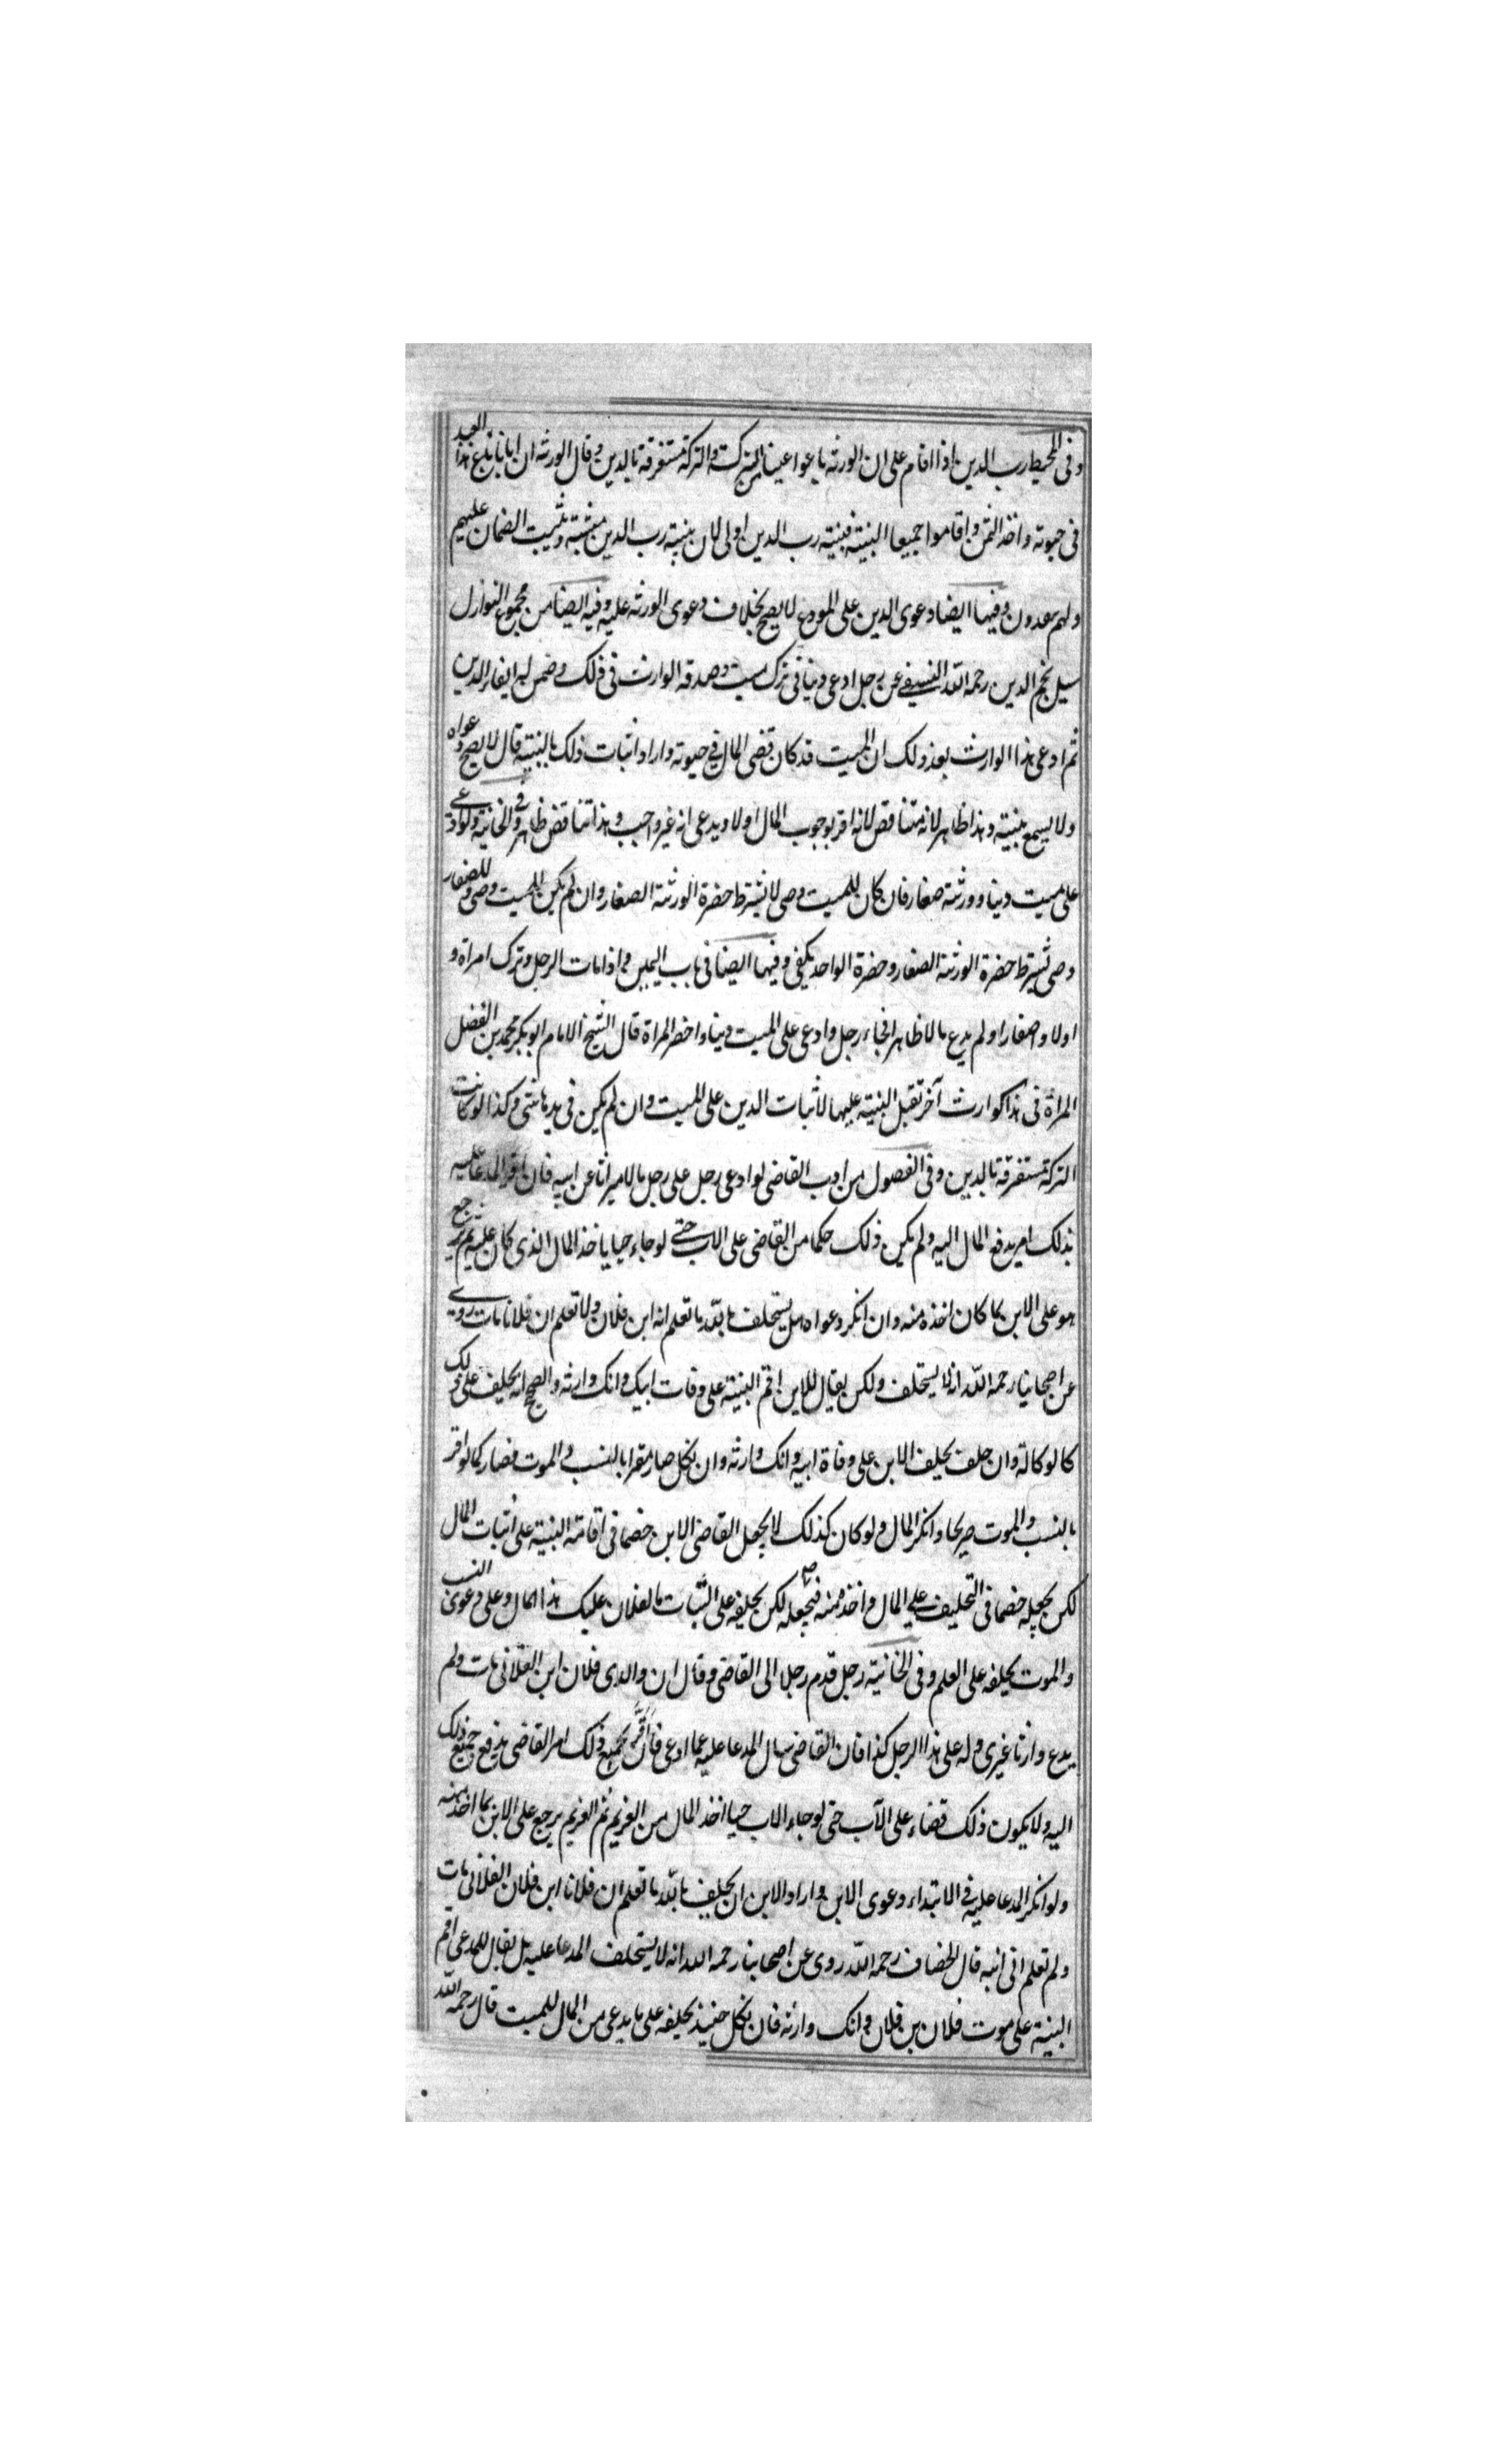 وفى المحيط رب الدين اذا اقام على ان الورثه باعوا عينا من التركة والتركة مستغرقة بالدين وقال الورثه ان ابانا باع هذا العبد
فى حيوته واخذ الثمن واقاموا جميعا البنية فبنية رب الدين اولى لان بنية رب الدين مثبتة وتثبت الضمان عليهم
وفيها ايضا دعوى الدين على المودع لا يصح بخلاف دعوى الورثه عليه وفيه ايضا من مجموع النوازل
سيل نجم الدين رحمه الله النسفى عن رجل ادعى دينا فى تركت ميت وصدقه الوارث فى ذلك وضمن له ايفاء الدين
ثم ادعى هذا الوارث بعد ذلك ان الميت قد كان قضى المال فى حيوته واراد اثبات ذلك بالبنية قال لا يصح دعواه
ولا يسمع بنيته وهذا ظاهر لانه متناقض لانه اقر بوجوب المال اولا ويدعى انه غير واجب وهذا تناقض ظاهر وفى الخانية ولو ادعى
على ميت دينا وورثته صغار فان كان للميت وصى لا نشترط حضرة الورثة الصغار وان لم يكن للميت وصى وللصغار
وصى تشترط حضرة الورثة الصغار وحضرة الواحد يكفى وفيها ايضا فى باب اليمين واذا مات الرجل وترك امراة و
اولادا صغارا ولم يدع مالا ظاهرا فجاء رجل وادعى على الميت دينا واحضر المراة قال الشيخ الامام ابو بكر محمد بن الفضل
المراة فى هذا كوارث آخر تقبل البنية عليها لاثبات الدين على الميت وان لم يكن فى يدها شى وكذا لو كانت
التركة مستغرقة بالدين وفى الفصول من ادب القاضى لو ادعى رجل على رجل مالا ميراثا عن ابيه فان اقر المدعا عليه
بذلك امر بدفع المال اليه ولم يكن ذلك حكما من القاضى على الاب حتى لو جاء حيا ياخذ المال الذى كان عليه ثم يرجع
هو على الابن بما كان اخذه منه وان انكر دعواه هل يستحلف بالله ما تعلم انه ابن فلان ولا تعلم ان فلانا مات روى
عن اصحابنا رحمه الله انه لا يستحلف ولكن يقال للابن اقم البنية على وفات ابيك وانك وارثه والصحيح انه يحلف على ذلك
كالوكالة وان حلف يحلف الابن على وفاة ابيه وانك وارثه وان نكل صار مقرا بالنسب والموت فصار كما لو اقر
بالنسب والموت صريحا وانكر المال ولو كان كذلك لا يجعل القاضى الابن خصما فى اقامة البنية على اثبات المال
لكن يجعله خصما فى التحليف على المال واخذه منه فيجعله لكن يحلفه على البتات ما لفلان عليك هذا المال وعلى دعوى النسب
والموت يحلفه على العلم وفى الخانية رجل قدم رجلا الى القاضى وقال ان والدى فلان ابن الفلانى مات ولم
يدع وارثا غيرى وله على هذا الرجل كذا فان القاضى سال المدعا عليه عما ادعى فان اقر بجميع ذلك امر القاضى بدفع جميع ذلك
اليه ولا يكون ذلك قضاء على الاب حتى لو جاء الاب حيا اخذ المال من الغريم ثم الغريم يرجع على الابن بما اخذ منه
ولو انكر المدعا عليه فى الابتداء دعوى الابن واراد الابن ان يحلف بالله ما تعلم ان فلانا ابن فلان الفلانى مات
ولم تعلم انى ابنه قال الخصاف رحمه الله روى عن اصحابنا رحمه الله انه لا يستحلف المدعا عليه بل يقال للمدعى اقم
البنية على موت فلان بن فلان وانك وارثه فان نكل حينئذ يحلفه على ما يدعى من المال للميت قال رحمه الله